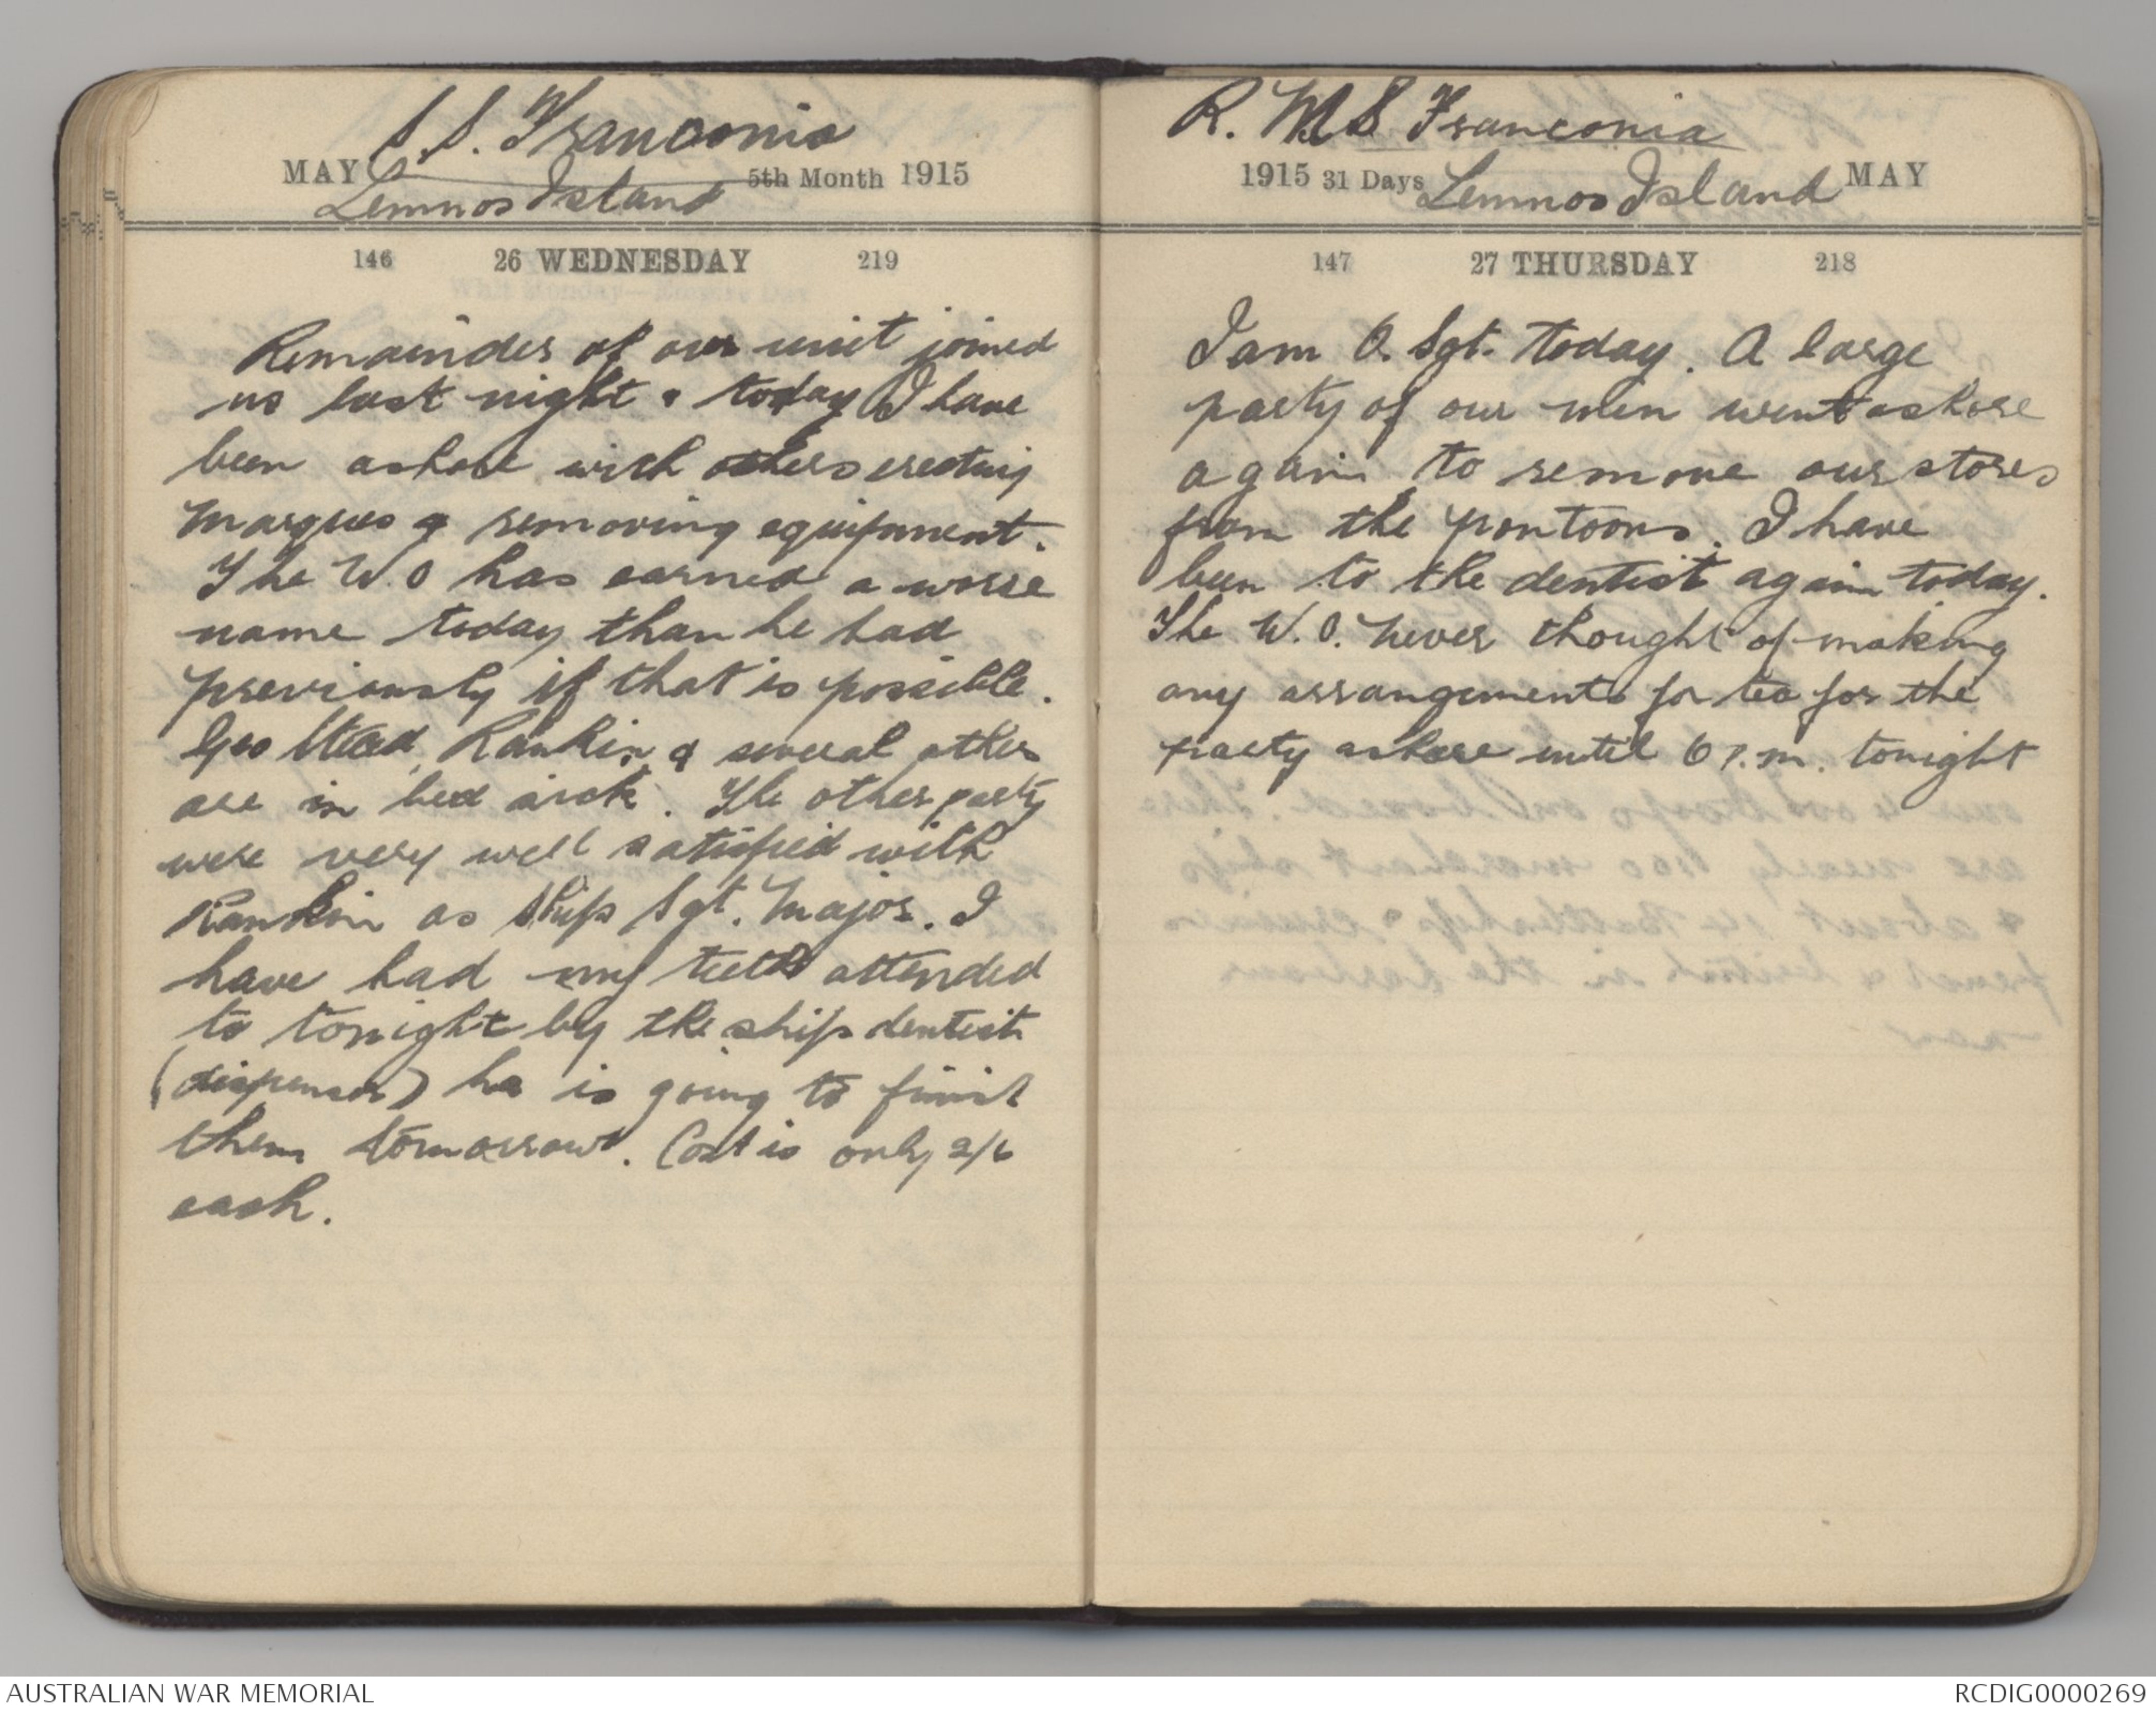 S.S. Franconia
MAY 5th Month 1915
Lemnos Island
146 26 WEDNESDAY 219
Remainder of our unit joined
us last night & today I have
been ashore with others erecting
Marques & removing equipment.
The W.O has earned a worse
name today than he had
previously if that is possible.
Geo Stead, Rankin, & several other
are in bed sick. The other party
were very well satisfied with
Rankin as Ships Sgt. Major. I
have had my teeth attended
to tonight by the ships dentist
(dispenser) he is going to finish
them tomorrow. Cost is only 2/6
each.
R. M S Franconia
1915 31 Days Lemnos Island MAY
147 27 THURSDAY 218
I am O. Sgt. today. A large
party of our men went ashore
again to remove our stores
from the pontoons. I have
been to the dentist again today.
The W.O. never thought of making
any arrangements for tea for the
party ashore until 6 p.m. tonight
AUSTRALIAN WAR MEMORIAL
RCDIG0000269